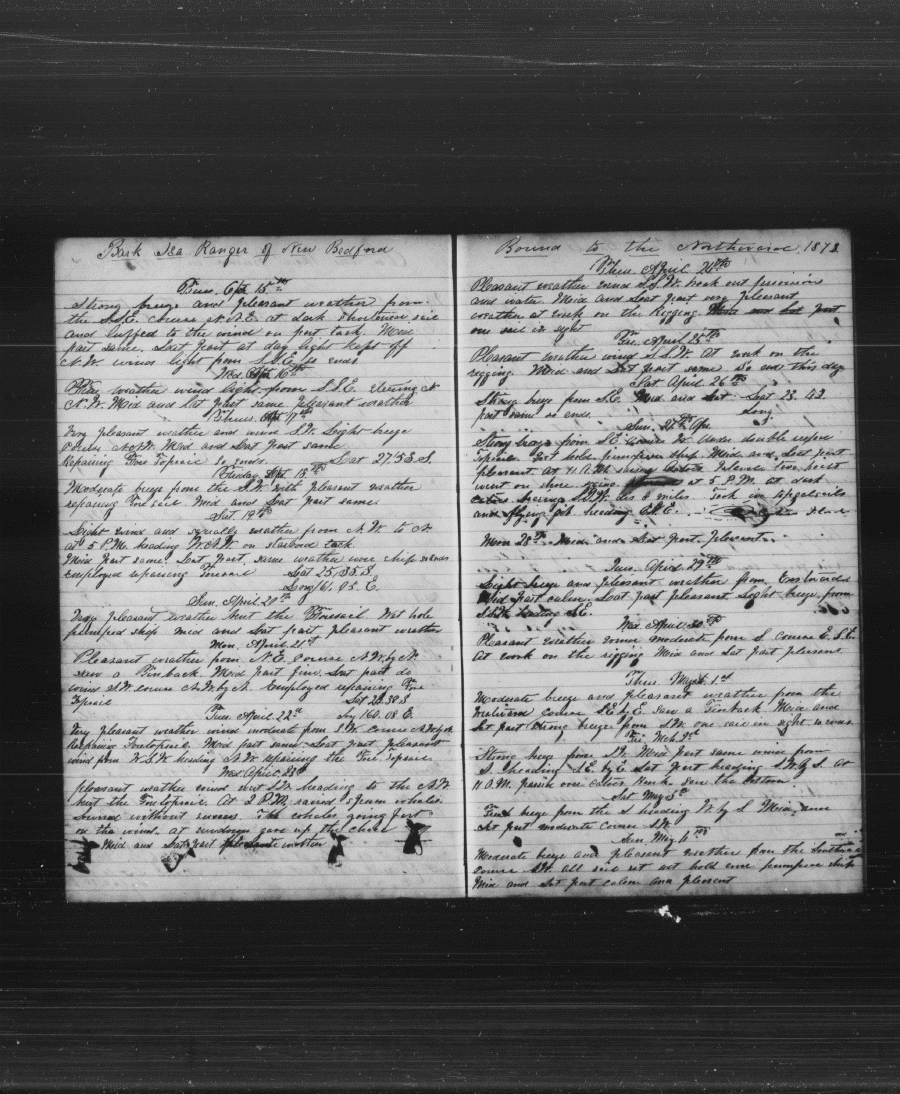 Bark Sea Ranger of New Bedford
Tues. Apr 15th
Strong breeze and pleasant weather from
the S.S.E. course N.N.E. at dark shortened sail
and luffed to the wind on port tack. Mid
part same. Last part at day light kept off
N.W. wind light from S.S.E. so ends
Wed Apr 16th
Fine weather wind light from S.S.E. steering N
N.W. Mid and Lat part same pleasant weather
Thurs. Apr 17th
Very pleasant weather and wind S.W. Light breeze
course N.N.W. Mid and Last part same
Repairing Fore Topsail So ends. Lat 27.58 S.
Friday Apr. 18th
Moderate breeze from the S.W. with pleasant weather
repairing Fore sail Mid and Last part same.
Sat. 19th
Light wind and squally weather from N.W. to N
at 5 P.M. heading W.N.W. on starbord tack.
Mid Part same. Last Part same weather wore ship
employed repairing Foresail Lat 25.35 S
Long 161.05 E.
Sun. April 20th
Very pleasant weather bent the Foresail Wet hole
pumped ship Mid and Lat part pleasant weather
Mon. April 21st
Pleasant weather from N.E. course N.W. by N.
saw a Finback. Mid part fine. Lat part do
wind course N.W. by N. Employed repairing Fore
Topsail Lat 22.38 S
Tues. April 22d Long 160.08 E.
Very pleasant weather wind moderate from S.W. course N.W. by N.
Repairing Foretopsail. Mid part same. Last Part pleasant
wind from W.S.W. heading N.W. repairing the Fore Topsail
Wed April 23d
pleasant weather wind heading to the N.W.
bent the Foretopsail. At 2 P.M. raised sperm whales.
lowered without success. The whales going fast
to the wind. at sundown gave up the chase
Mid and Last part pleasant weather
Bound to the Northward, 1873
Thurs. April 24th
Pleasant weather wind S.S.W. broke out provision
and water. Mid and Last part very pleasant
weather at work on the Rigging.
one sail in sight
Fri. April 25th
Pleasant weather wind S.S.W. At work on the
rigging. Mid and Lat part same So ends this day
Sat April 26th
Strong breeze from S.E. Mid and Lat Lat 13.43
part same so ends. Long
Sun. 27th Apr.
Strong breeze from S.E. course W. Under double reefed
Topsails. Wet hole pumped ship Mid and Last part
pleasant. At 11 A.M. saw Island two boats
went on shore at 5 P.M. at dark
bearing S.W. dis 8 miles. Took in
and flying jib heading E.S.E.
Mon 28th. Mid and Lat part pleasant.
Tues. April 29th
Light breeze and pleasant weather from Eastward
Mid part calm. Last part pleasant light breeze from
S.S.W. heading S.E.
Wed. April 30th
Pleasant weather wind moderate from S course E.S.E.
At work on the rigging Mid and Lat part pleasant.
Thurs. May 1st
Moderate breeze and pleasant weather from the
Westward course S.E. by E. saw a Finback Mid and
Lat part strong breeze from S.W. one sail in sight so ends
Fri 2d
Strong breeze from S.W. Mid part same wind from
S. heading S.E. by E Lat Part heading S.W. by S. at
11 A.M. passed
Sat. May 3d
Fresh breeze from the S heading W. by S Mid and
Lat part moderate course S.W.
Sun. May 4th
Moderate breeze and pleasant weather from the Southward
course S.W. all sail set wet hold and pumped ship
Mid and Lat part calm and pleasant